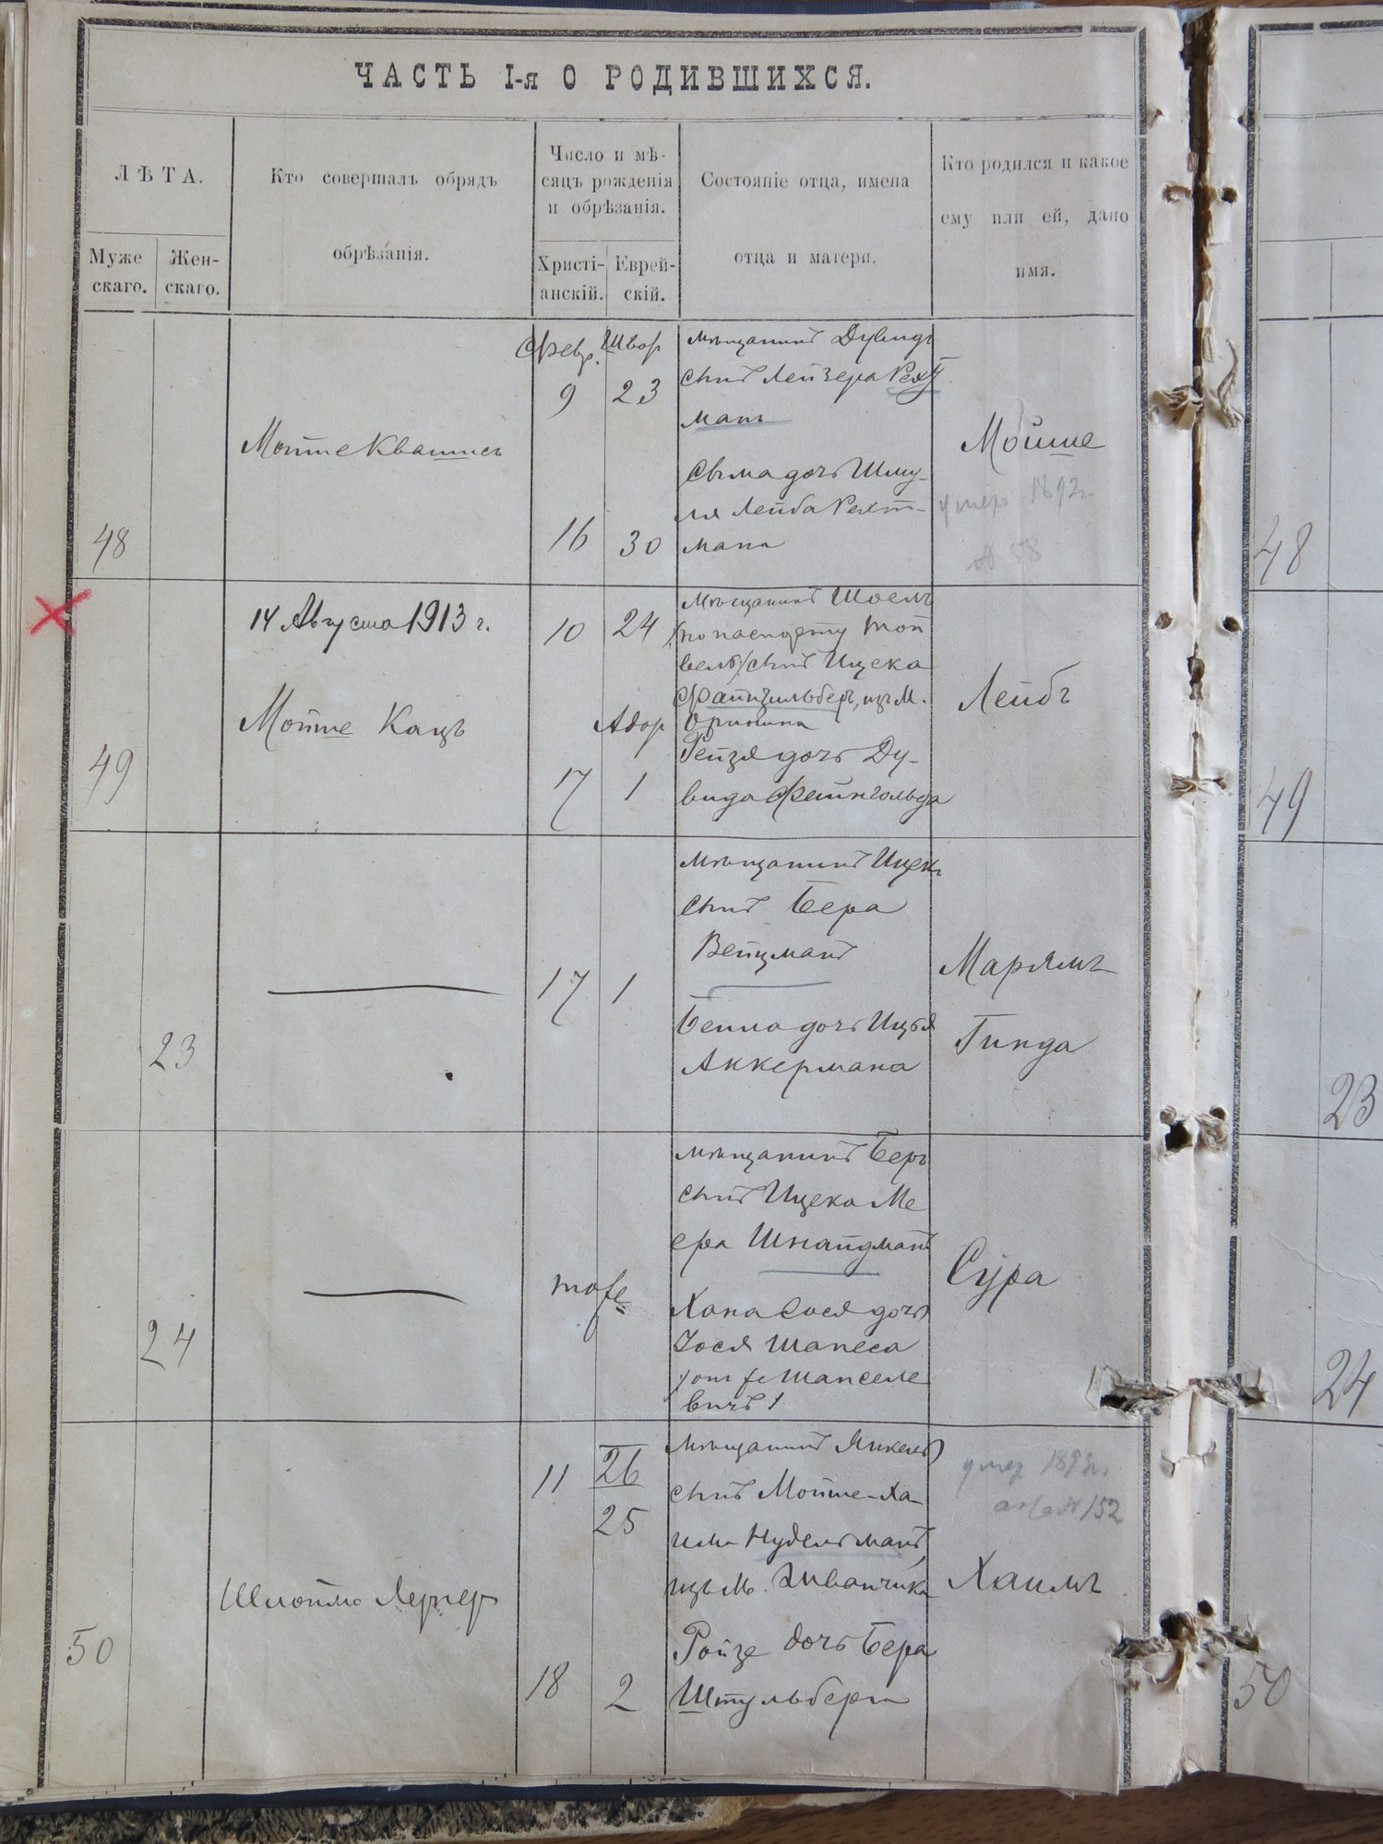 ЧАСТЬ I-я О РОДИВШИХСЯ.
ЛѢТА.
Муже
скаго.
Жен-
скаго.
Кто совершалъ обрядъ
обрѣзанія.
Число и мѣ-
сяцъ рожденія
и обрѣзанія.
Христі-
анскій.
Еврей-
скій.
Состояніе отца, имена
отца и матери.
Кто родился и какое
ему или ей, дано
имя.
48
Мойше Квашисъ
Февр.
9
16
Швор
23
30
мѣщанинъ Дувидъ
сынъ Лейзера Рехт
манъ
Сыма дочь Шму-
ля Лейба Рехт-
мана
Мойше
умер 1892
№ 58
48
49
14 Августа 1913 г.
Мойше Кацъ
10
17
24
Адор
1
Мѣщанинъ Шоелъ
по паспорту
сынъ Ицека
изъ М.
Оринина
Рейзя дочь Ду-
вида Фейнгольда
Лейбъ
49
23
17
1
мѣщанинъ Ицекъ
сынъ Бера
Вейцманъ
Бейла дочь
Аккермана
Марямъ
Гинда
23
24
тоже
мѣщанинъ Беръ
сынъ Ицека Ме
ера Шнайдманъ
Хана Сося дочь
Іося Шапеса
Сура
24
50
Шлойме Лернер
11
18
26
25
2
мѣщанинъ Янкель
сынъ Мойше-Ха-
има Нудельманъ,
изъ М. Жванчика
Ройзе дочь Бера
Штульберга
умер
№ 152
Хаимъ
50